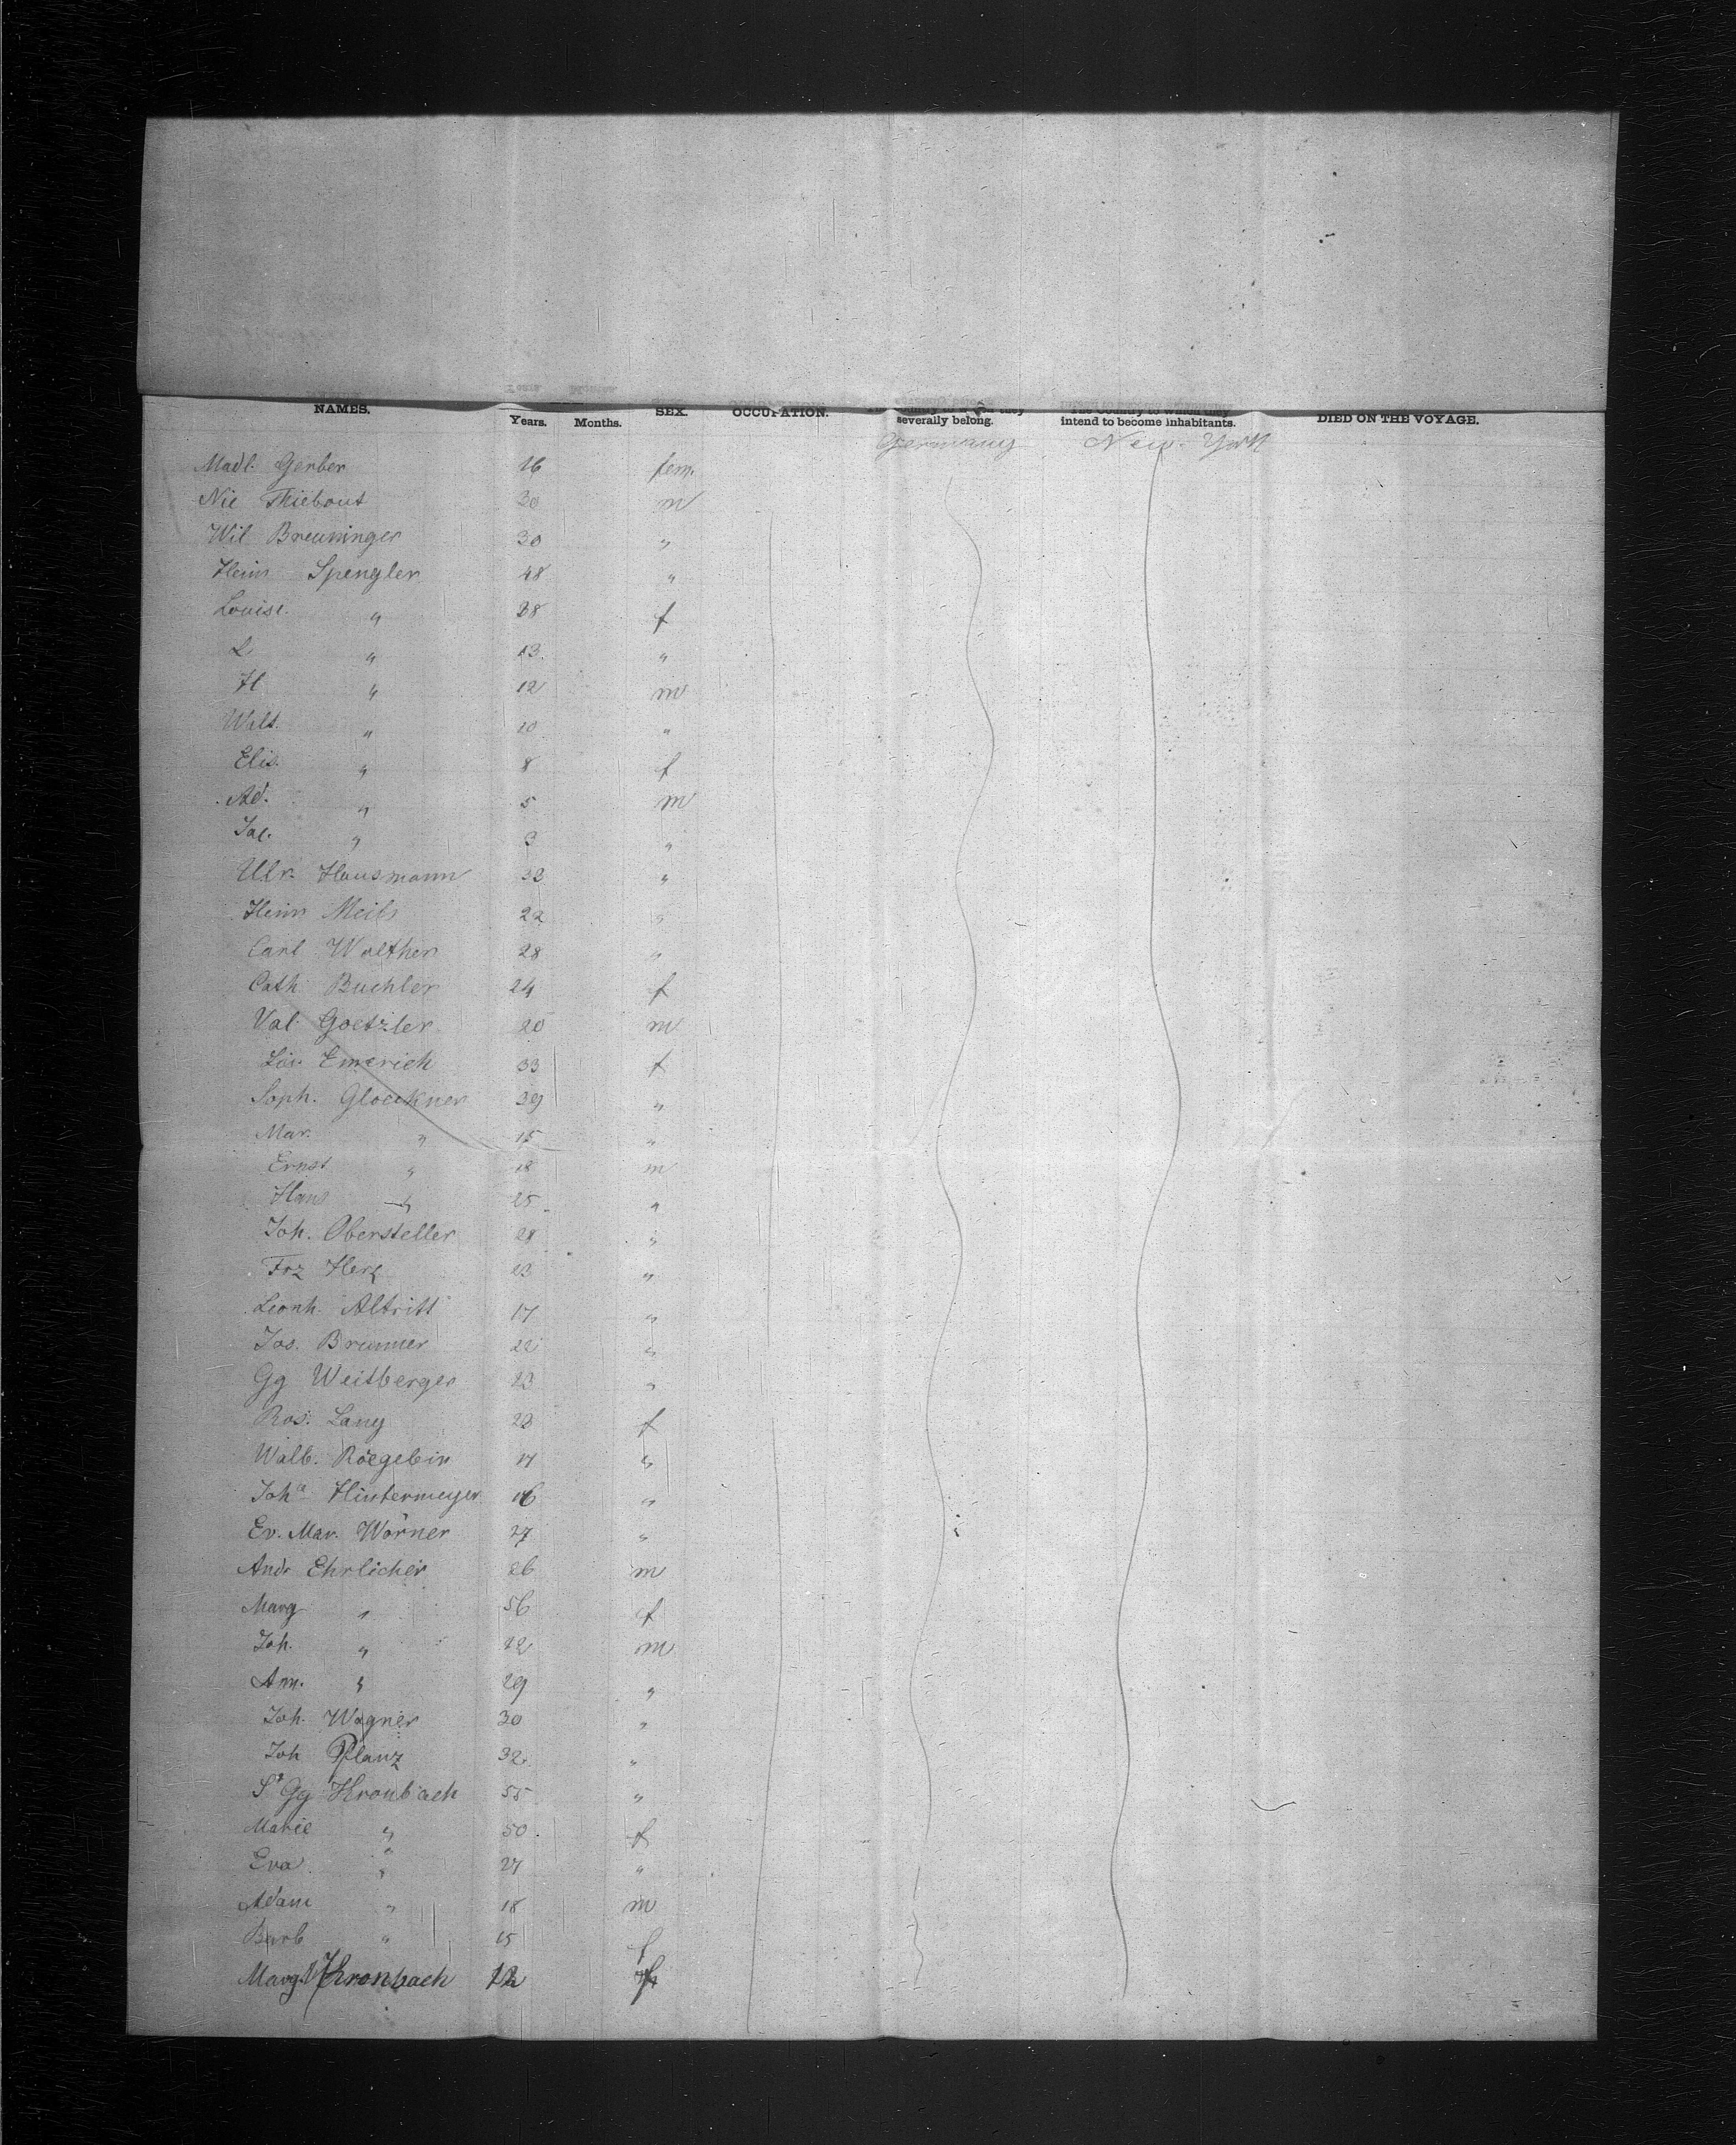 NAMES. Years. Months. SEX. OCCUPATION. severally belong. The Country to which they intend to become inhabitants. DIED ON THE VOYAGE.
Germany New-York
Madl. Gerber 16 fem.
Nic Thiebout 30 m
Wil Breuninger 30 "
Heinr Spengler 48 "
Louise. " 38 f
L " 13. "
H " 12 m
Walt. " 10 "
Elis. " 8 f
Ad. " 5 m
Jac. " 3 "
Ulr. Hausmann 32 "
Heinr 22 "
Carl Walther 28 "
Cath Buchler 24 f
Val. Goetzler 20 m
Emerich 33 f
Soph. Gloeckner 39 "
Mar. " 15 "
Ernst " 18 m
Hans " 25 "
Joh. Obersteller 28 "
Frz Herz 23 "
Leonh. Altritt 17 "
Jos. Brunner 22 "
Gg Weitberger 23 "
Ros. Lang 22 f
Walb. Röegelein 17 "
Joha Hintermeyer 16 "
Ev. Mar. Wörner 27 "
Andr Ehrlicher 26 m
Marg " 56 f
Joh. " 22 m
Ann. " 29 "
Joh. Wagner 30 "
Joh Pflanz 32. "
Gg Kronbach 55 "
Marie " 50. f
Eva " 27 "
Adam " 18 m
Barb " 15 f
Marg. Kronbach 12 f